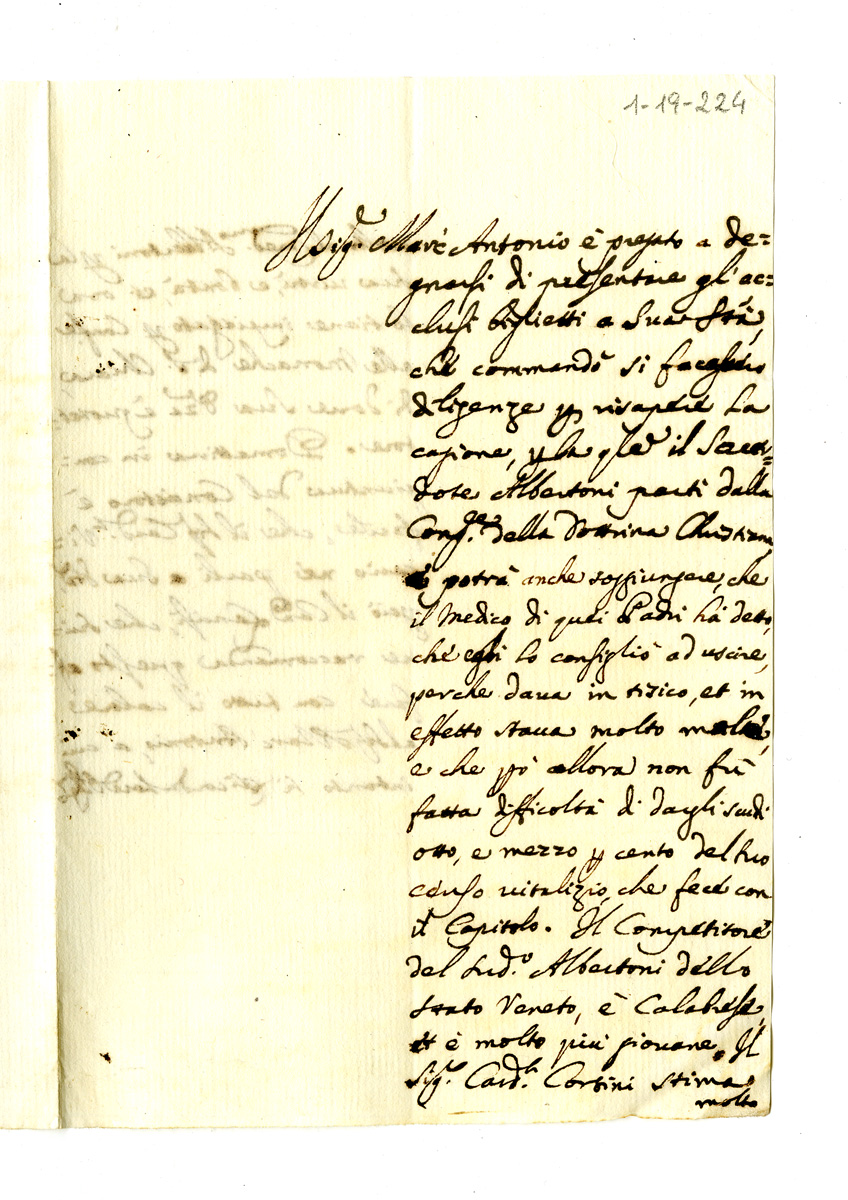 1-19-224
Il Sig.r Marc Antonio è pregato a de=
gnarsi di presentare gl'ac=
clusi biglietti a Sua Stà,
che commandò si facessero
diligenze p risapere la
cagione, p la qle il Sacer=
dote Albertoni partì dalla
Cong.ne della Dottrina Christiana,
e potrà anche soggiungere, che
il Medico di quei Padri hà detto,
che egli lo consigliò ad uscire,
perche daua in tisico, et in
effetto staua molto male,
e che allora non fù
fatta difficoltà di dargli scudi
otto, e mezzo p cento del suo
censo vitalizio, che fece con
il Capitolo. Il Competitore
del sud.o Albertoni dello
stato Veneto, è Calabrese,
et è molto più giouane. Il
Sig.r Card.l Corsini stima
molto